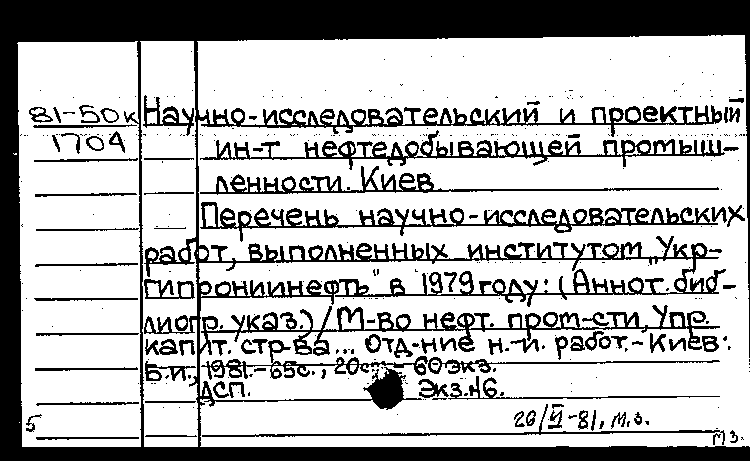 81-50к Научно-исследовательский и проектный
1704 ин-т нефтедобывающей промыш-
ленности. Киев.
Перечень научно-исследовательских
работ, выполненных институтом „Укр-
гипрониинефть" в 1979 году: (Аннот. биб-
лиогр. указ.) / М-во нефт. пром-сти, Упр.
капит. стр-ва... Отд-ние н.-и. работ. - Киев:
Б.и., 1981. - 65с.; 20см - 60 экз.
ДСП. Экз. №6.
5 26/VI-81, м.з.
мз.